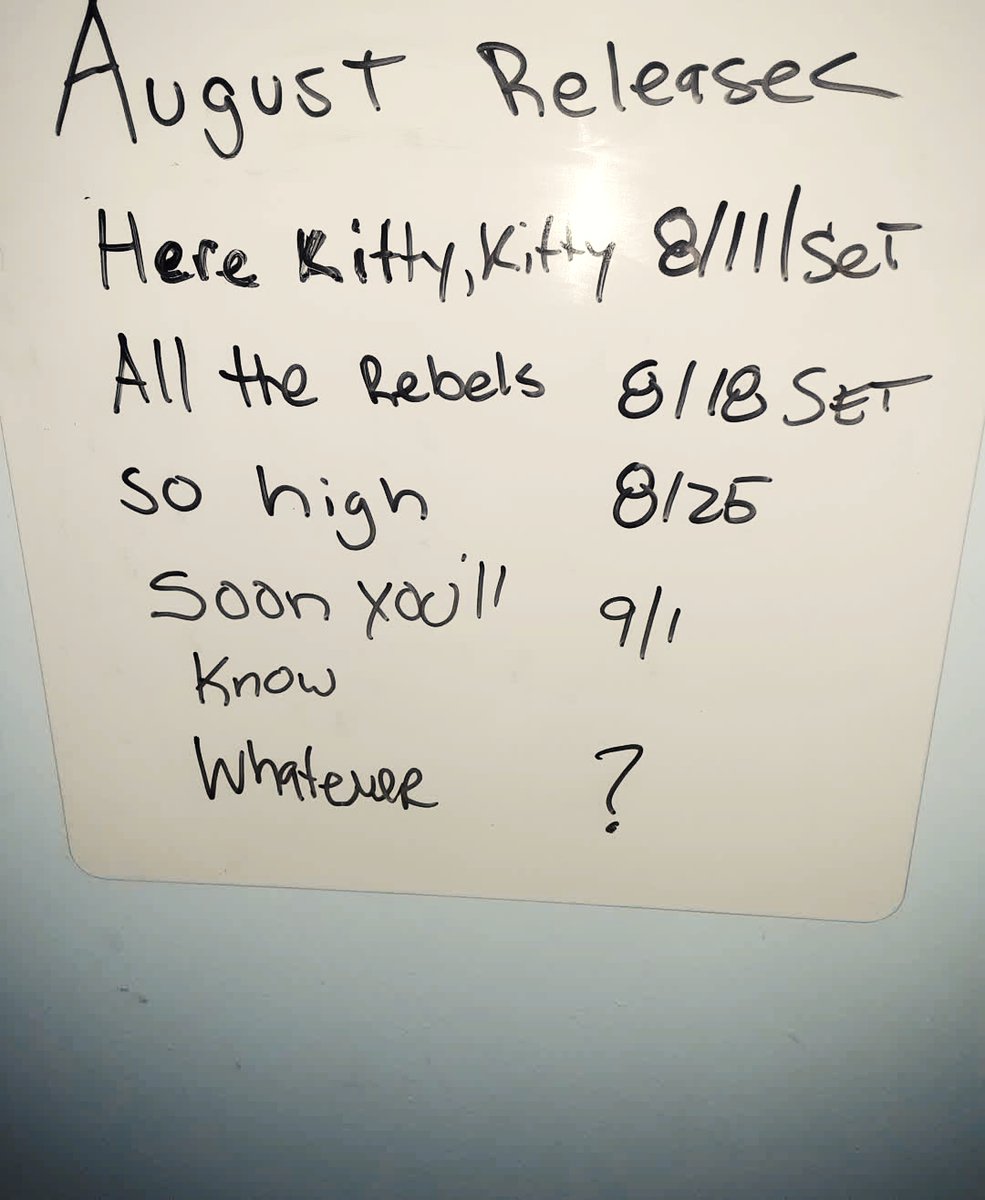 August Releases
Here Kitty, Kitty 8/11/SET
All the Rebels 8/18 SET
So high 8/25
Soon you'll 9/1
Know
Whatever ?